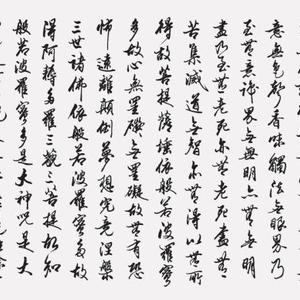 意無色聲香味觸法無眼界乃
至無意識界無無明亦無無明
盡乃至無老死亦無老死盡無
苦集滅道無智亦無得以無所
得故菩提薩埵依般若波羅蜜
多故心無罣礙無罣礙故無有恐
怖遠離顛倒夢想究竟涅槃
三世諸佛依般若波羅蜜多故
得阿耨多羅三藐三菩提故知
般若波羅蜜多是大神咒是大